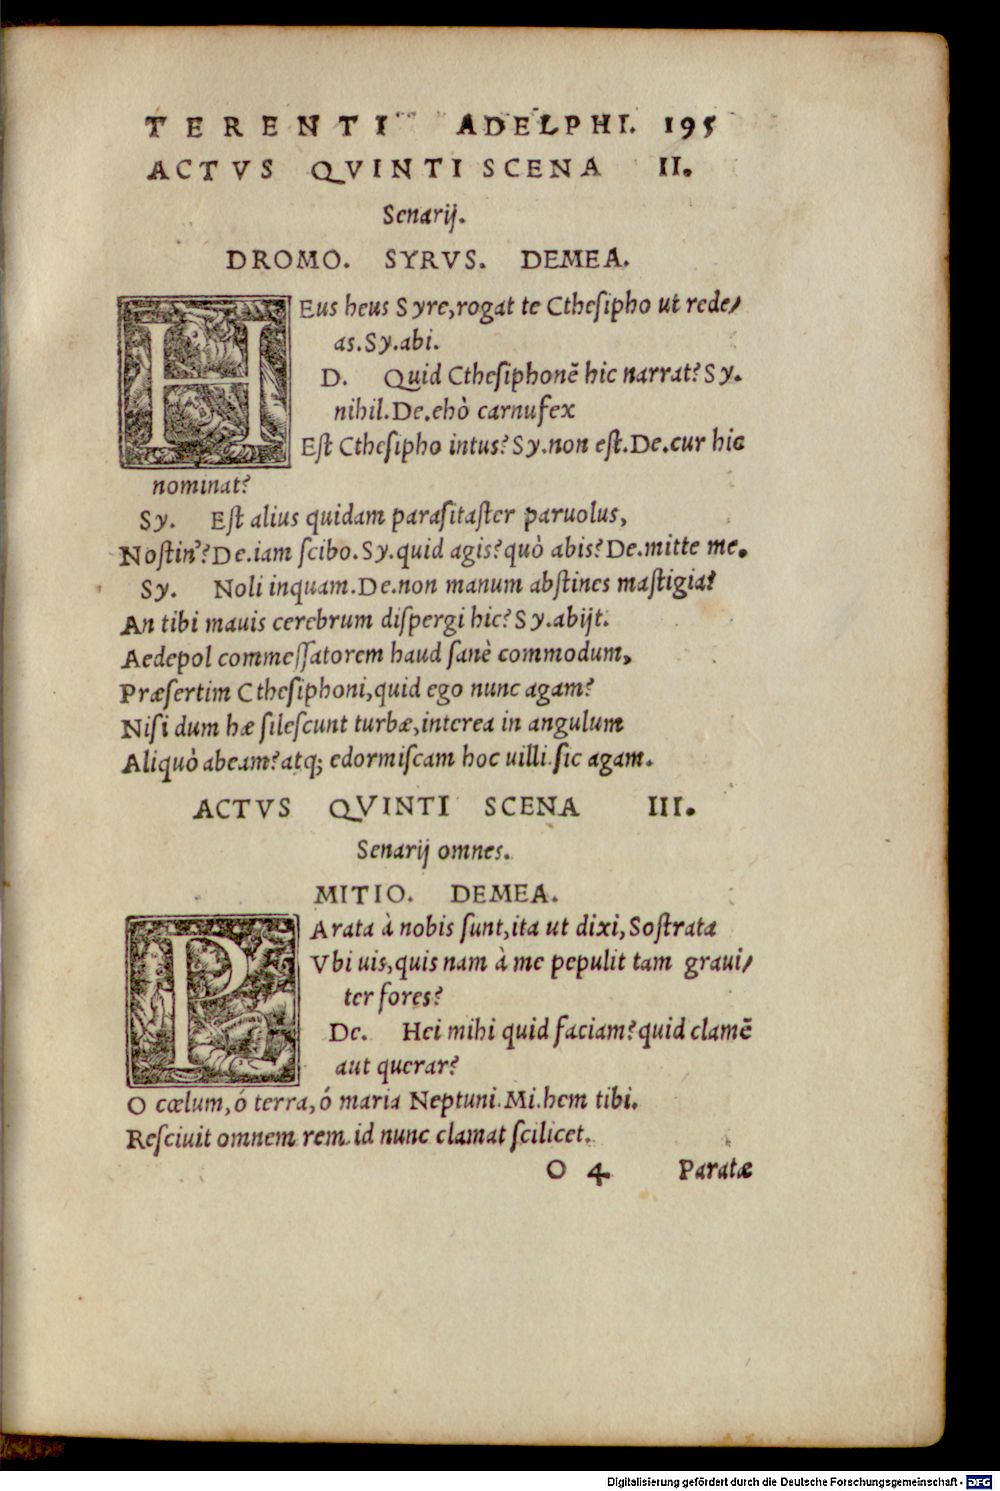 TERENTI ADELPHI. 195
ACTVS QVINTI SCENA II.
Senarij.
DROMO. SYRVS. DEMEA.
HEus heus Syre, rogat te Ctheſipho ut rede/
as. Sy. abi.
D. Quid Ctheſiphonē hic narrat? Sy.
nihil. De. ehò carnufex
Eſt Ctheſipho intus? Sy. non eſt. De. cur hic
nominat?
Sy. Eſt alius quidam paraſitaſter paruolus,
Noſtin'? De. iam ſcibo. Sy. quid agis? quò abis? De. mitte me.
Sy. Noli inquam. De. non manum abſtines maſtigia?
An tibi mauis cerebrum diſpergi hic? Sy. abijt.
Aedepol commeſſatorem haud ſanè commodum,
Præſertim Ctheſiphoni, quid ego nunc agam?
Niſi dum hæ ſileſcunt turbæ, interea in angulum
Aliquò abeam? atq; edormiſcam hoc uilli. ſic agam.
ACTVS QVINTI SCENA III.
Senarij omnes.
MITIO. DEMEA.
PArata à nobis ſunt, ita ut dixi, Soſtrata
Vbi uis, quis nam à me pepulit tam graui/
ter fores?
De. Hei mihi quid faciam? quid clamē
aut querar?
O cœlum, ó terra, ó maria Neptuni. Mi. hem tibi.
Reſciuit omnem rem. id nunc clamat ſcilicet.
O 4 Paratæ
Digitalisierung gefördert durch die Deutsche Forschungsgemeinschaft - DFG